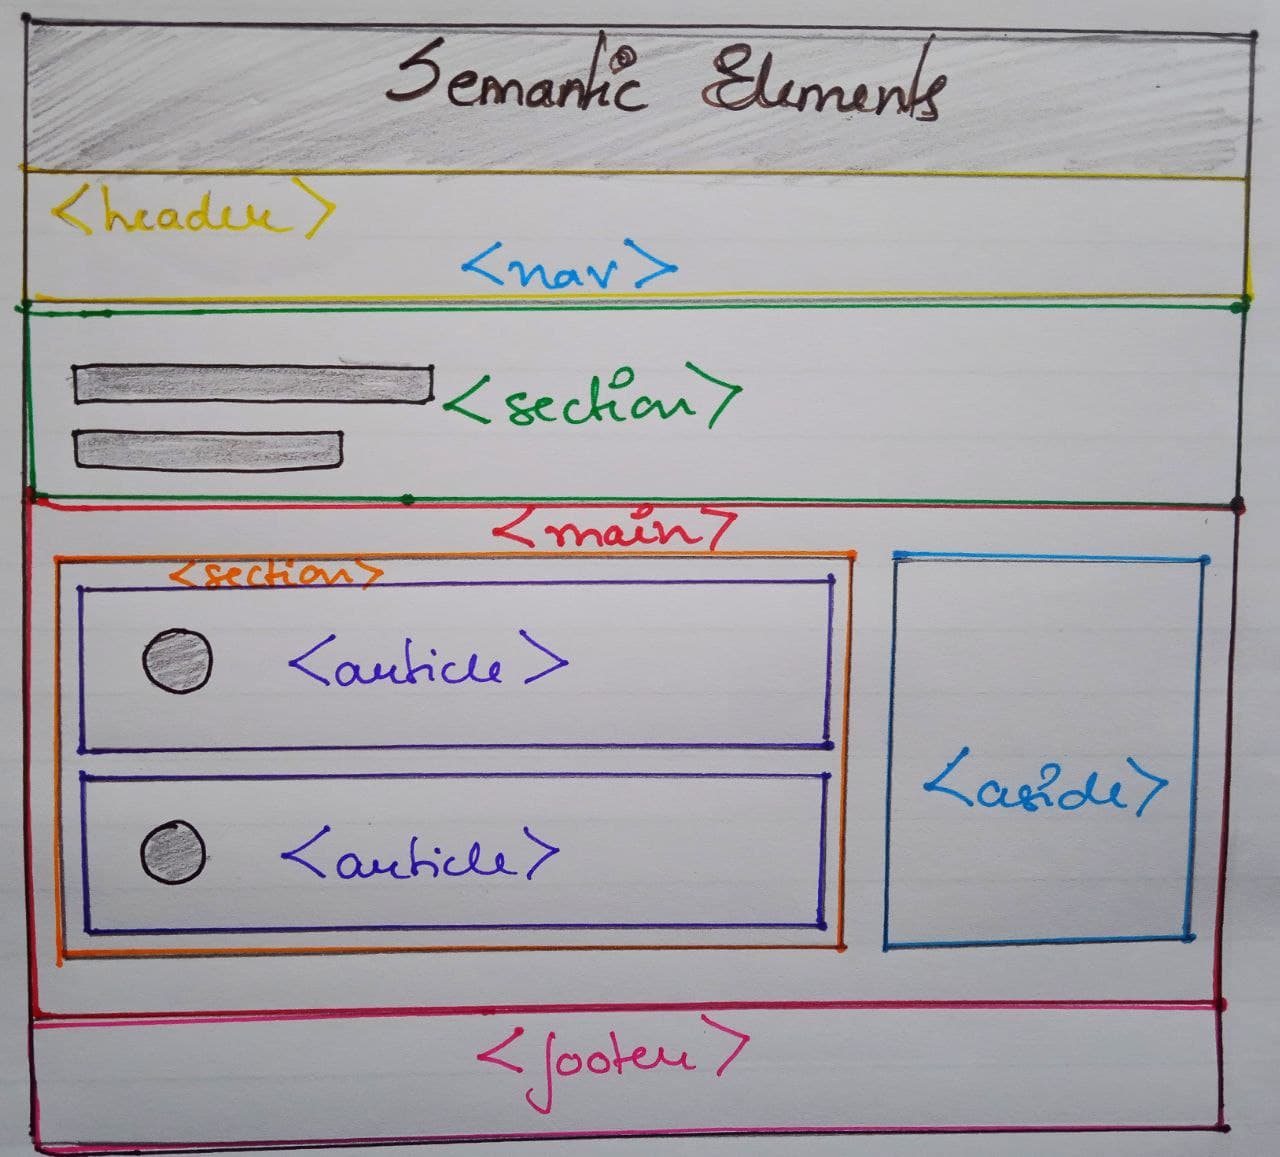 Semantic Elements
<header>
<nav>
<section>
<main>
<section>
<article>
<article>
<aside>
<footer>